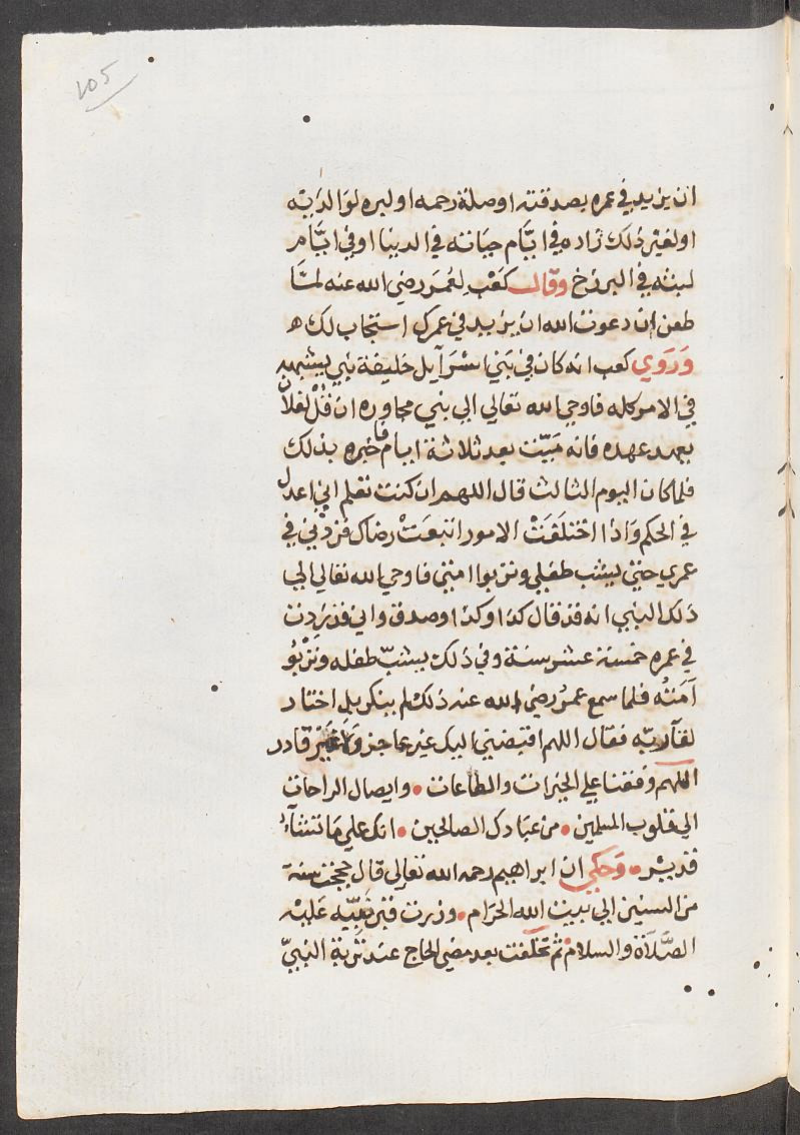 105
ان يزيد في عمره بصدقته او صلة رحمه او لبره لوَالدَيْه
او لغير ذلك زاده في ايَّام حياته في الدينا او في ايَّام
لبثه في البرزخ وقال كَعْب لِعُمَر رضي الله عنه لمَّا
طعن ان دعوت الله ان يزيد في عمرك استجاب لك ه
وَرَوَي كعب انه كان في بَني اسْرَآيل خليفة نبي يشبهه
في الامر كله فاوحي الله تعالي الي نبي مجاوره ان قُلْ لفلان
يعهد عهده فانه مَيّت بعد ثلاثة ايام فاخبره بذلك
فلما كان اليوم الثالث قال اللهم ان كنت تعلم اني اعدل
في الحكم وَاذا اختلَفَتْ الامور اتبعَتْ رضاك فزدْني في
عمري حتي يشب طفلي وتربوا امتي فاوحي الله تعالي الي
ذلك النبي انه قد قال كذا وكذا وصدق واني قد زدت
في عمره خمسة عشر سنة وفي ذلك يشبّ طفله وتَرْبُو
اَمَتُه فلما سمع عمرُ رضي الله عنه ذلك لم ينكر بل اختار
لقآ ربّه فقال اللهم اقبضني اليك غير عاجز وَلَا غيْر قادر
اللهم وفقنا علي الخيرات والطاعات • وايصال الراحات
الي قلوب المسلمين • من عبادك الصالحين • انك علي مَا تشآء
قديْر • وَحكي ان ابراهيم رحمه الله تعالي قال حججت سنة
من السنين الي بيت الله الحرَام • وزرت قبر نَبيّه عَلَيْه
الصَّلَاة والسلام ثم تخلّفت بعد مضي الحاج عند تُربة النبيّ